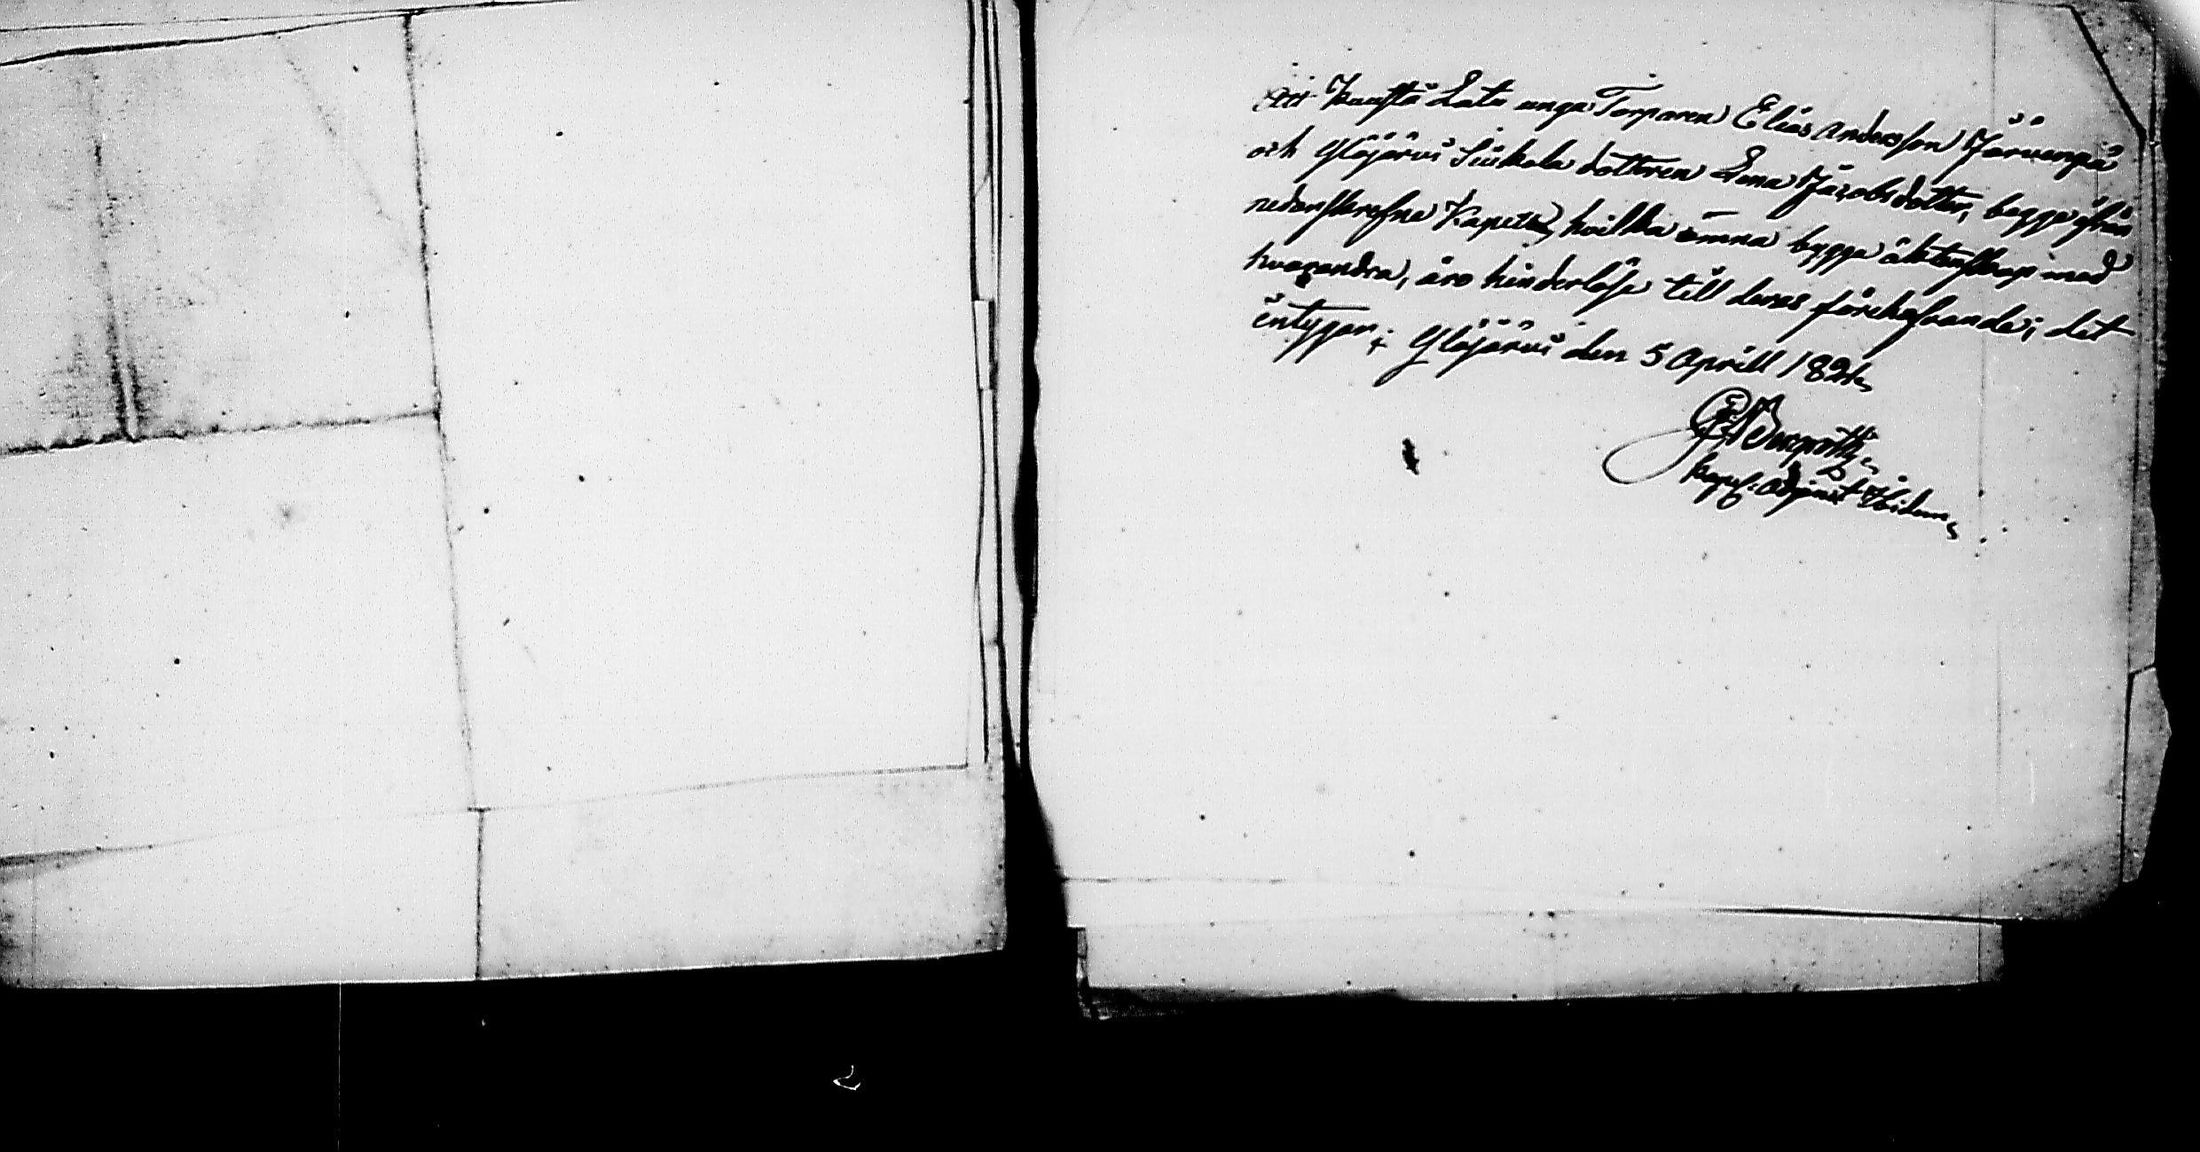 Att Kaasta Lata unga Torparen Elias Andersson Järvenpä
och Ylöjärvi Siukola dottren Lena Jacobsdotter, begge ifrån
nedanskrefne Kapell, hvilka ämna bygga äktenskap med
hvarandra, äro hinderlöse till deras förehafvande; det
intygar; Ylöjärvi den 5 Aprill 1824.
Bergroth
kapel: Adjunct Ibidem